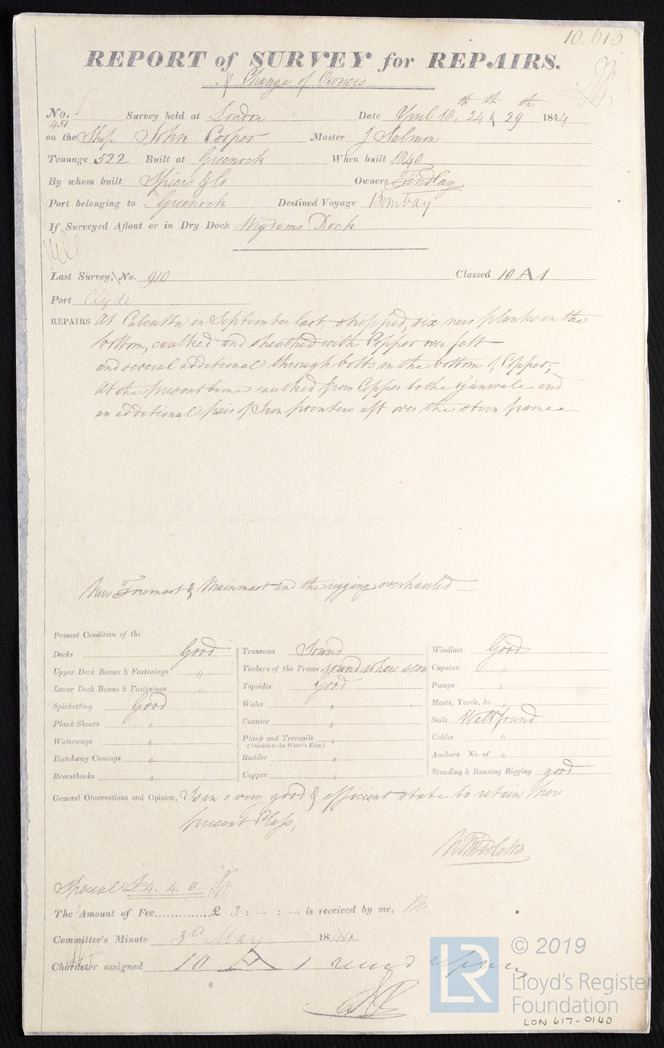 10.613
REPORT of SURVEY for REPAIRS.
& Change of Owners
No. 451 Survey held at London Date April 18th, 24th & 29th 1844
on the Ship John Cooper Master J Salmon
Tonnage 522 Built at Greenock When built 1840
By whom built Spiers & Co Owners Findlay
Port belonging to Greenock Destined Voyage Bombay
If Surveyed Afloat or in Dry Dock Wigrams Dock
Last Survey, No. 910 Classed 10 A 1
Port Clyde
REPAIRS At Calcutta in September last, stripped, six new planks in the
bottom, caulked and sheathed with Copper over felt
and several additional through bolts in the bottom of Copper,
At the present time caulked from Copper to the Gunwale and
an additional pair of Iron pointers aft over the stern frame
New Foremast & Mainmast and the rigging overhauled
Present Condition of the
Decks Good Transoms Sound Windlass Good
Upper Deck Beams & Fastenings " Timbers of the Frame sound where seen Capstan "
Lower Deck Beams & Fastenings " Topsides Good Pumps "
Spirketting Good Wales " Masts, Yards, &c. "
Plank Shears " Counter " Sails Well found
Waterways " Plank and Treenails " Cables "
(Outside to the Water's Edge)
Hatchway Comings " Rudder " Anchors No. of "
Breasthooks " Copper " Standing & Running Rigging good
General Observations and Opinion, Is in a very good & efficient state to retain her
present Class,
Special £4.4.0
The Amount of Fee............ £ 3 : - : - is received by me,
Committee's Minute 3rd May 1844
Character assigned 10 A 1
LR © 2019
Lloyd's Register
Foundation
LON 617-0140